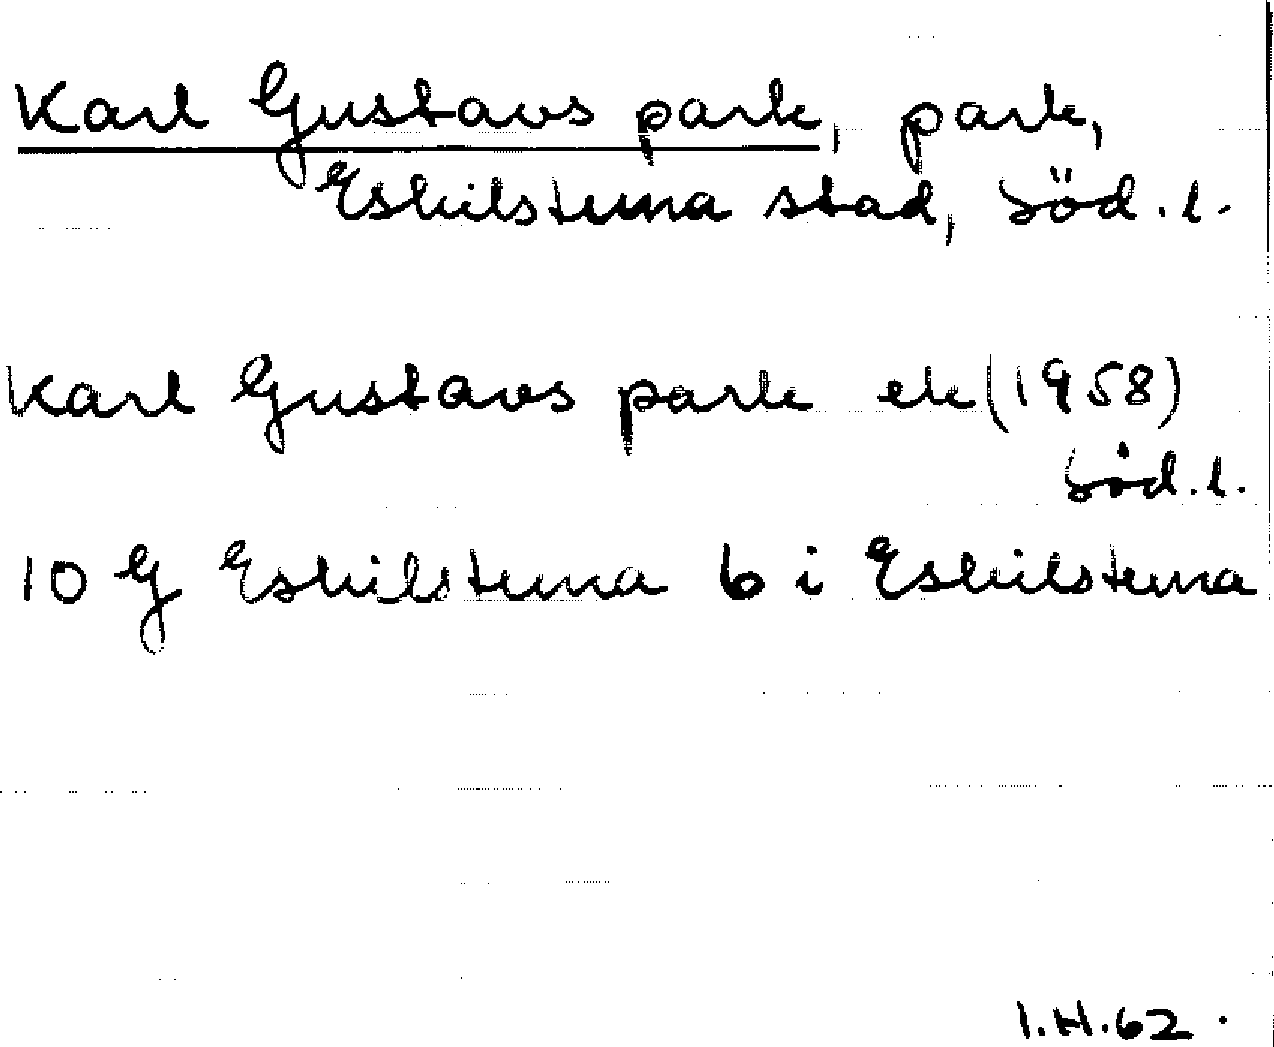 Karl Gustavs park, park,
Eskilstuna stad, Söd. l.
Karl Gustavs park ek (1958)
Söd. l.
10 G Eskilstuna b i Eskilstuna
I.H.62.